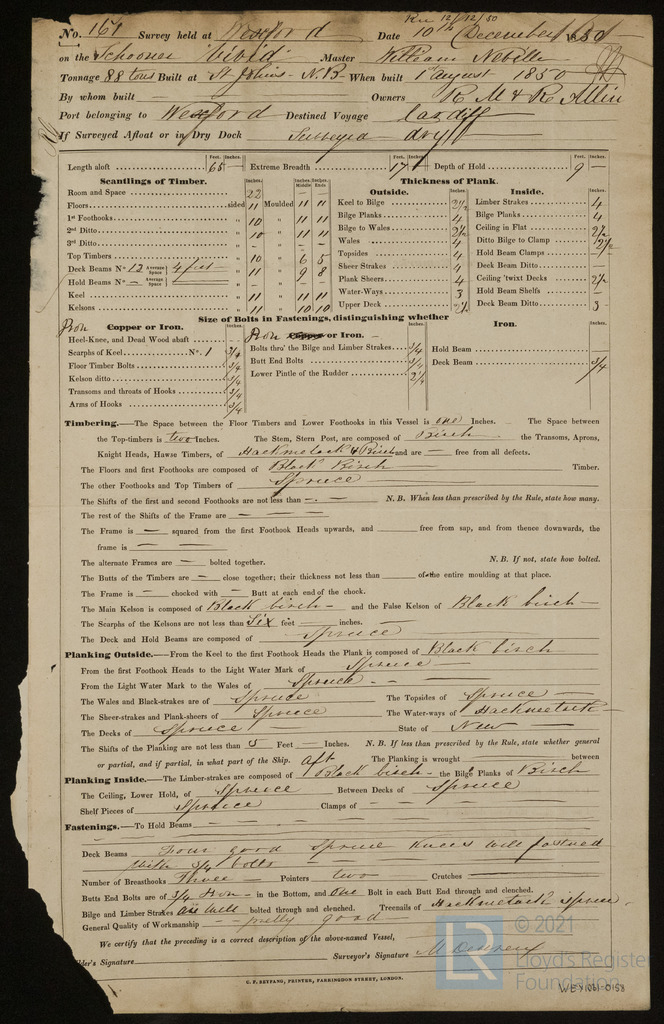 Rec 12/12/50
No. 161 Survey held at Wexford Date 10th December 1850
on the Schooner "Vivid" Master William Neville
Tonnage 88 tons Built at St Johns - N.B - When built 1st August 1850
By whom built — Owners R. M & R. Allin
Port belonging to Wexford Destined Voyage Cardiff
If Surveyed Afloat or in Dry Dock Surveyed dry
Feet. Inches. Feet. Inches. Feet. Inches.
Length aloft 65 — Extreme Breadth 17 1 Depth of Hold 9 —
Scantlings of Timber. Thickness of Plank.
Inches. Inches Middle Inches Ends Outside. Inches. Inside. Inches.
Room and Space 22 — — Keel to Bilge 2 1/2 Limber Strakes 4
Floors sided 11 Moulded 11 11 Bilge Planks 4 Bilge Planks 4
1st Foothooks „ 10 „ 11 11 Bilge to Wales 2 1/2 Ceiling in Flat 2 1/2
2nd Ditto „ 10 „ 11 11 Wales 4 Ditto Bilge to Clamp 2 1/2
3rd Ditto „ - „ - - Topsides 4 Hold Beam Clamps —
Top Timbers „ 10 „ 6 5 Sheer Strakes 4 Deck Beam Ditto
Deck Beams No 12 Average Space 4 feet „ 11 „ 9 8 Plank Sheers 4 Ceiling 'twixt Decks 2 1/2
Hold Beams No — Average Space — Water-Ways 3 Hold Beam Shelfs —
Keel „ 11 „ 11 11 Upper Deck 2 1/2 Deck Beam Ditto 3
Kelsons „ 11 „ 10 10
Size of Bolts in Fastenings, distinguishing whether
Iron Copper or Iron. Inches. Iron Copper or Iron. Inches. Iron. Inches.
Heel-Knee, and Dead Wood abaft - - Bolts thro' the Bilge and Limber Strakes 3/4 Hold Beam —
Scarphs of Keel No. 1 3/4 Butt End Bolts 3/4 Deck Beam 3/4
Floor Timber Bolts 3/4 Lower Pintle of the Rudder 2 1/4
Kelson ditto 3/4
Transoms and throats of Hooks 3/4
Arms of Hooks 3/4
Timbering.—The Space between the Floor Timbers and Lower Foothooks in this Vessel is one Inches. - The Space between
the Top-timbers is two Inches. The Stem, Stern Post, are composed of Birch the Transoms, Aprons,
Knight Heads, Hawse Timbers, of Hackmetack & Birch and are — free from all defects.
The Floors and first Foothooks are composed of Black Birch Timber.
The other Foothooks and Top Timbers of Spruce
The Shifts of the first and second Foothooks are not less than — N. B. When less than prescribed by the Rule, state how many.
The rest of the Shifts of the Frame are — — —
The Frame is — squared from the first Foothook Heads upwards, and ___ free from sap, and from thence downwards, the
frame is — — —
The alternate Frames are — bolted together. N. B. If not, state how bolted.
The Butts of the Timbers are — close together; their thickness not less than ___ of the entire moulding at that place.
The Frame is — chocked with — Butt at each end of the chock.
The Main Kelson is composed of Black birch - and the False Kelson of Black birch -
The Scarphs of the Kelsons are not less than Six feet — inches. —
The Deck and Hold Beams are composed of Spruce
Planking Outside.—From the Keel to the first Foothook Heads the Plank is composed of Black birch
From the first Foothook Heads to the Light Water Mark of Spruce
From the Light Water Mark to the Wales of Spruce - -
The Wales and Black-strakes are of Spruce The Topsides of Spruce —
The Sheer-strakes and Plank-sheers of Spruce The Water-ways of Hackmeetack
The Decks of Spruce State of New
The Shifts of the Planking are not less than 5 Feet — Inches. N. B. If less than prescribed by the Rule, state whether general
or partial, and if partial, in what part of the Ship. Aft The Planking is wrought — between
Planking Inside.—The Limber-strakes are composed of Black birch - the Bilge Planks of Birch
The Ceiling, Lower Hold, of Spruce Between Decks of Spruce
Shelf Pieces of Spruce Clamps of —
Fastenings.—To Hold Beams — — —
Deck Beams Four good Spruce Knees well fastened
with 3/4 bolts
Number of Breasthooks Three Pointers two Crutches —
Butts End Bolts are of 3/4 Iron - in the Bottom, and One Bolt in each Butt End through and clenched.
Bilge and Limber Strakes are well bolted through and clenched. Treenails of Hackmetack & Spruce.
General Quality of Workmanship - pretty good —
We certify that the preceding is a correct description of the above-named Vessel,
lder's Signature Surveyor's Signature
C. F. SEYFANG, PRINTER, FARRINGDON STREET, LONDON.
LR
© 2021
Lloyd's Register
Foundation
WEX1001-0158